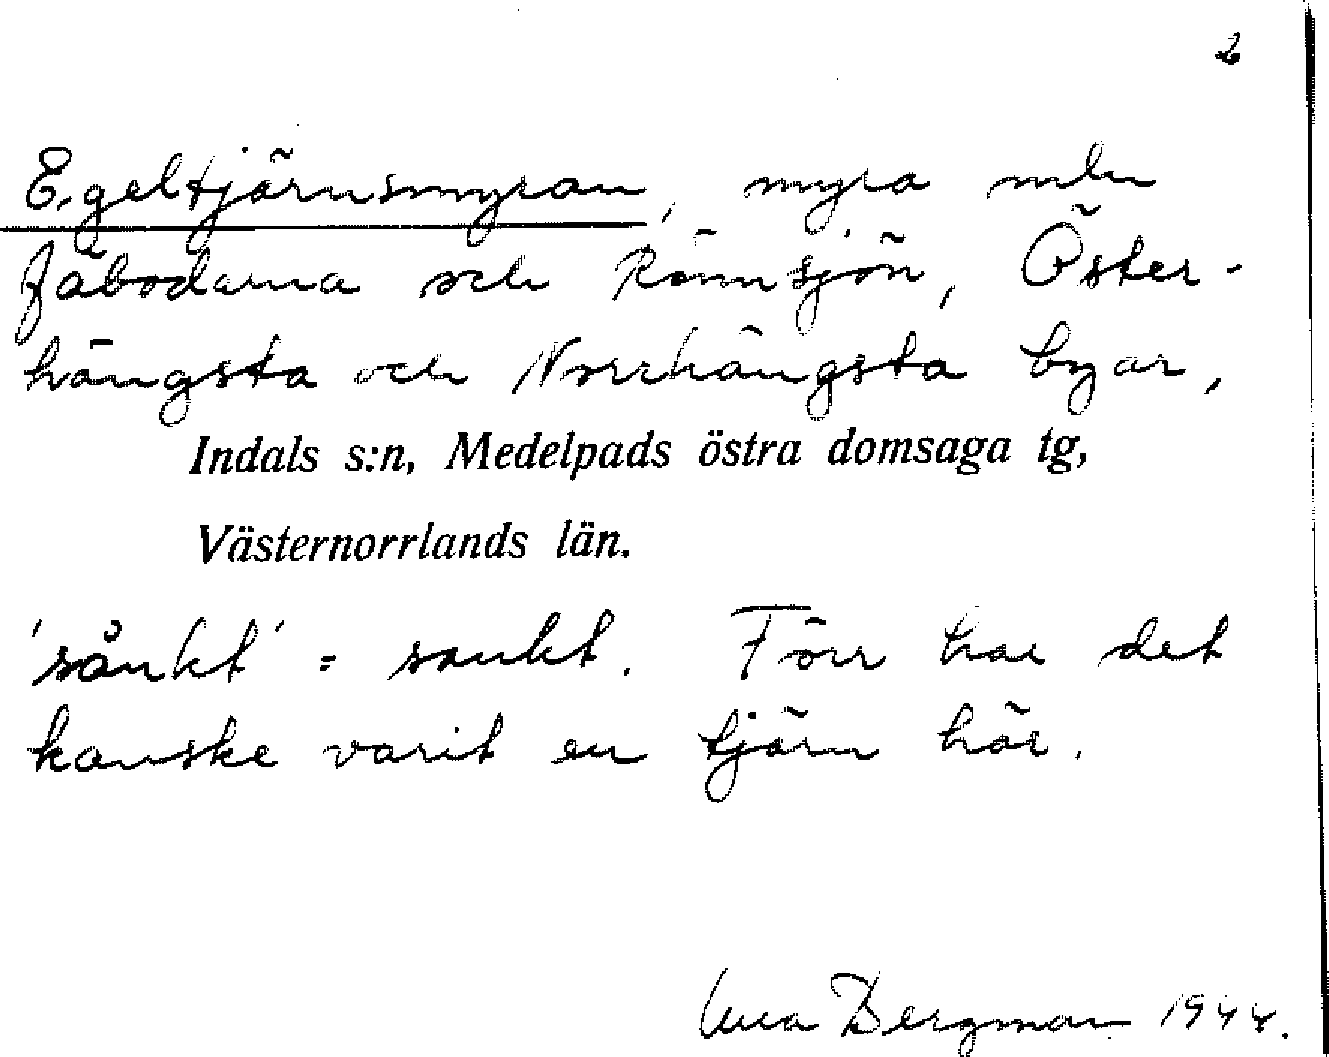 2
Egeltjärnsmyran, myra mln
fäbodarna och Römsjön, Öster-
hängsta och Norrhängsta byar,
Indals s:n, Medelpads östra domsaga tg,
Västernorrlands län.
'sånkt' = sankt. Förr har det
kanske varit en tjärn här.
Bergman 1944.